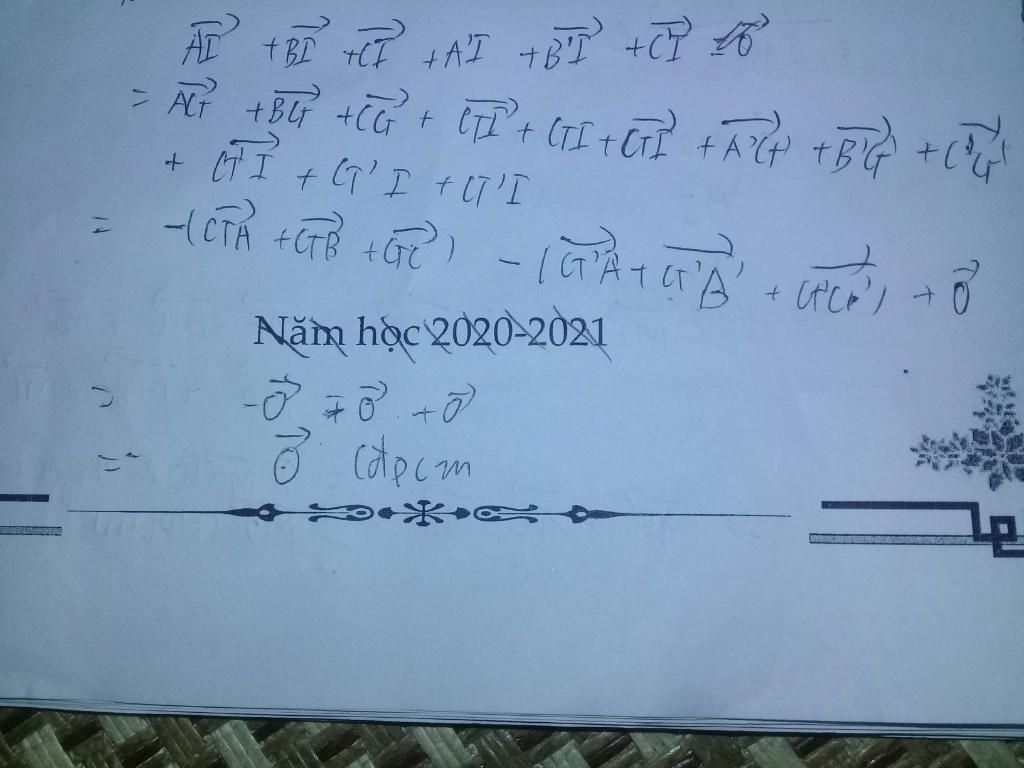 AI + BI + CI + A'I + B'I + C'I = 0
= AG + BG + CG + GI + GI + GI + A'G' + B'G' + C'G'
+ G'I + G'I + G'I
= -(GA + GB + GC) - (G'A + G'B' + G'C') + 0
Năm học 2020-2021
= -0 + 0 + 0
= 0 (đpcm